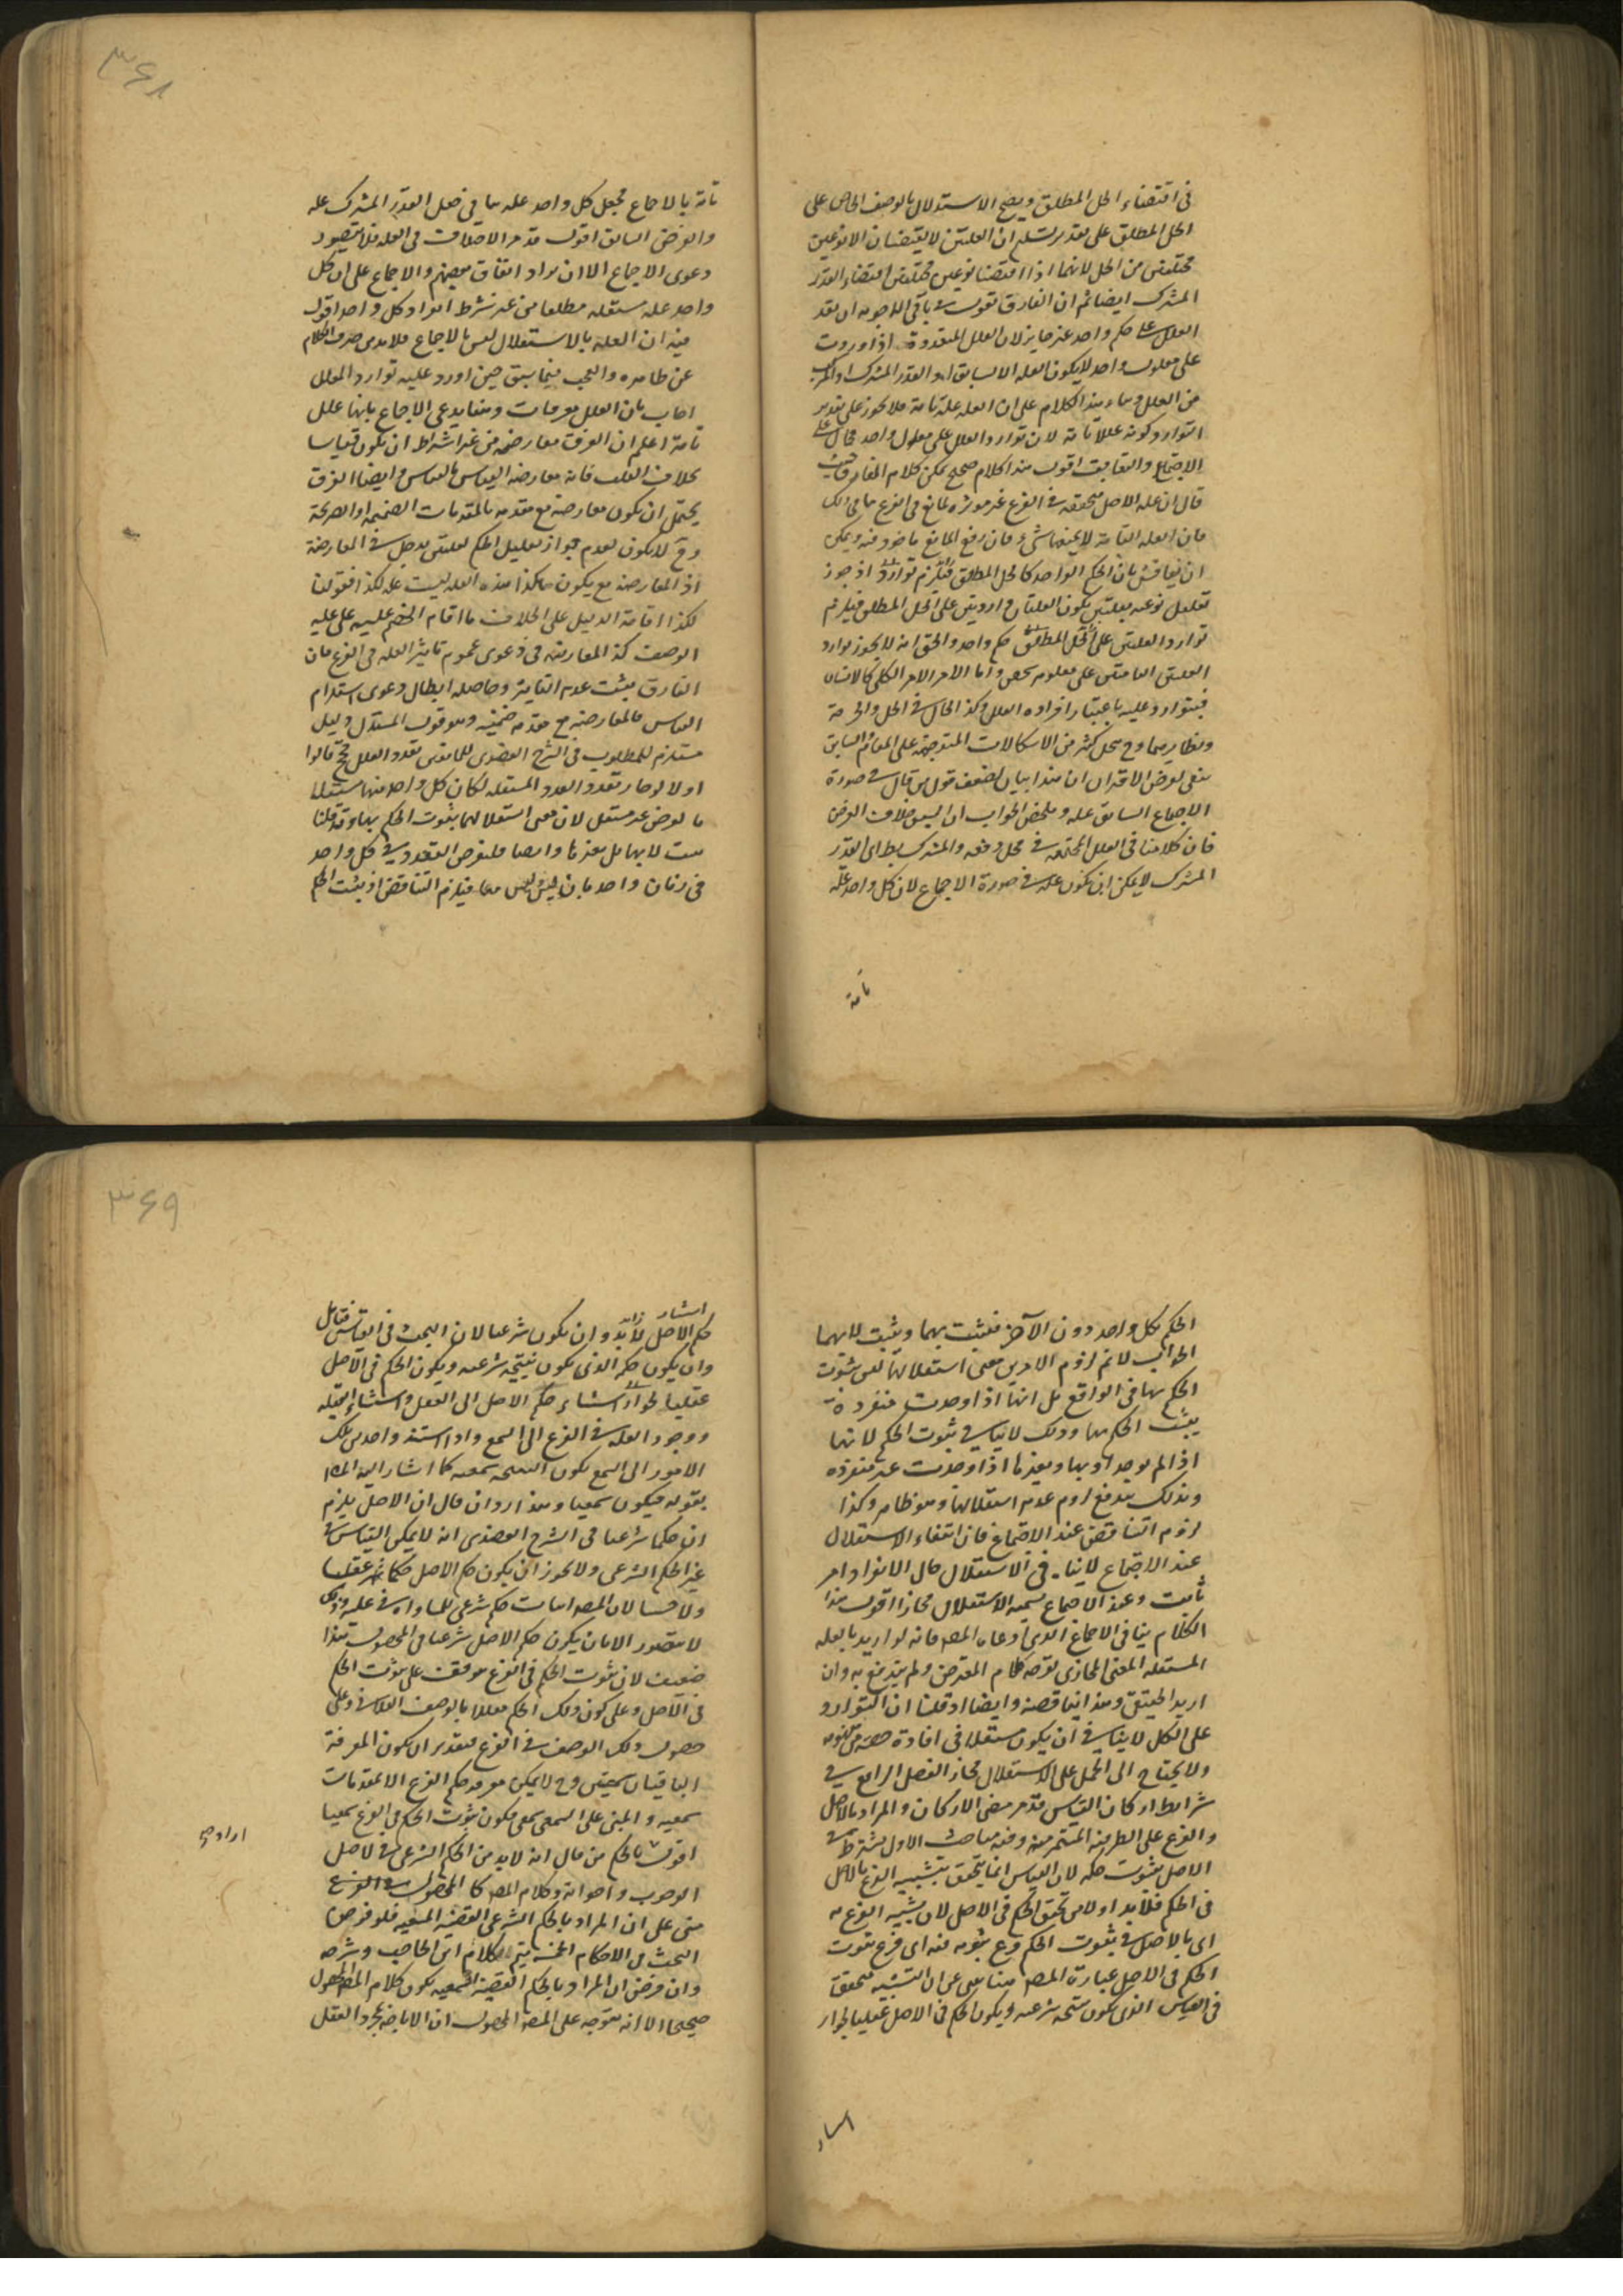 في اقتضاء الحل المطلق ويصح الاستدلال بالوصف الخاص على
الحل المطلق على تقدير تسليم ان العلتين لا يقتضيان الا نوعين
مختلفين من الحل لانهما اذا اقتضيا نوعين مختلفين اقتضاء القدر
المشترك ايضا ثم ان الفارق تقول في باقي الاجوبة ان تعدد
العلل على حكم واحد غير جايز لان العلل المتعددة اذا وردت
على معلول واحد لا يكون العلة الا السابق او القدر المشترك او المركب
من العلل وبناء هذا الكلام على ان العلة علة تامة فلا يجوز على تقدير
التوارد كونه عللا تامة لان توارد العلل على معلول واحد محال على
الاجتماع والتعاقب اقول هذا كلام صحيح يمكن كلام الفارق حيث
قال ان علة الاصل متحققة في الفرع غير موثرة لمانع في الفرع
فان العلة التامة لا يمنعها شيء فان رفع المانع ماخوذ فيه ويمكن
ان يناقش بان الحكم الواحد كالحل المطلق فيلزم توارد اذ جوز
تعليل نوعيه بعلتين يكون العلتان واردتين على الحل المطلق فيلزم
توارد العلتين على الحل المطلق حكم واحد والحق انه لا يجوز توارد
العلتين التامتين على معلول شخصي واما الامر الكلي كالانسان
فيتوارد عليه باعتبار افراده العلل وكذا الحال في الحل والحرمة
ونظايرهما وح يحل كثير من الاشكالات المتوجهة على المقام السابق
الاجماع السابق علة وملخص الجواب ان السبق خلاف الفرض
فان كلامنا في العلل المجتمعة في محل دفعة والمشترك بط اي القدر
المشترك لا يمكن ان يكون علة في صورة الاجماع لان كل واحد علة
تامة
٣٦٨
تامة بالاجماع فجعل كل واحد علة ينافي جعل القدر المشترك علة
والفرض السابق اقول قد مر الاختلاف في العلة فلا يتصور
دعوى الاجماع الا ان يراد اتفاق بعضهم والاجماع على ان كل
واحد علة مستقلة مطلقا من غير شرط انفراد كل واحد اقول
فيه ان العلة بالاستقلال ليس بالاجماع فلا بد من صرف الكلام
عن ظاهره والعجب فيما سبق حين اورد عليه توارد العلل
اجاب بان العلل معرفات وهنا يدعي الاجماع بانها علل
تامة اعلم ان الفرق معارضة من غير اشتراط ان يكون قياسا
بخلاف القلب فانه معارضة القياس بالقياس وايضا الفرق
يحتمل ان يكون معارضة مع مقدمة بالمقدمات الضمنية او الصريحة
وح لا يكون لعدم جواز تعليل الحكم بعلتين مدخل في المعارضة
اذ المعارضة مع يكون هكذا هذه العلة ليست علة لكذا فقولنا
لكذا اقامة الدليل على الخلاف ما اقام الخصم عليه على علية
الوصف كذا المعارضة في دعوى عموم تاثير العلة في الفرع فان
الفارق يثبت عدم التاثير وحاصله ابطال دعوى استلزام
القياس فالمعارضة مع مقدمة ضمنية وهو قول المستدل دليلي
مستلزم للمطلوب في الشرح العضدي للمانعين تعدد العلل حجج قالوا
اولا لو جاز تعدد العلل المستقلة لكان كل واحد منها مستقلا
ما لو فرض غير مستقل لان معنى استقلالها ثبوت الحكم بها وقد قلنا
يثبت لا بها بل بغيرها وايضا فلنفرض التعدد في محل واحد
في زمان واحد فيلزم التناقض اذ يثبت الحكم
الحكم بكل واحد دون الآخر فيثبت بهما ويثبت لا بهما
الجواب لا نم لزوم الامرين معنى استقلالها ليس ثبوت
الحكم بها في الواقع بل انها اذا وجدت منفردة
يثبت الحكم بها وذلك لا ينافي ثبوت الحكم لا بها
اذا لم يوجد او بها وبغيرها اذا وجدت غير منفردة
وبذلك يندفع لزوم عدم استقلالها وهو ظاهر وكذا
لزوم التناقض عند الاجتماع فان انتفاء الاستقلال
عند الاجتماع لا ينافي الاستقلال حال الانفراد امر
ثابت وعند الاجماع تسميه الاستقلال مجازا اقول هذا
الكلام ينافي الاجماع الذي ادعاه المصـ فانه لو اريد بالعلة
المستقلة المعنى المجازي توجه كلام المعترض ولم يندفع به وان
اريد الحقيقي وهذا يناقضه وايضا اذ قلنا ان التوارد
على الكل لا ينافي ان يكون مستقلا في افادة
ولا يحتاج الى الحمل على الاستقلال مجازا الفصل الرابع في
شرائط اركان القياس قد مر معنى الاركان والمراد بالاصل
والفرع على الطريقة المستمرة وفيه مباحث الاول يشترط في
الاصل ثبوت حكمه لان القياس انما يتحقق بتشبيه الفرع بالاصل
في الحكم فلابد اولا من تحقق الحكم في الاصل لان تشبيه الفرع به
اي بالاصل في ثبوت الحكم فرع ثبوته فيه اي فرع ثبوت
الحكم في الاصل عبارة المصـ هنا
في القياس الذي يكون نتيجة شرعية ويكون الحكم في الاصل عقليا لجواز
استناد
٣٦٩
استناد
حكم الاصل لابد وان يكون شرعيا لان البحث في القياس
وان يكون حكم الذي يكون نتيجة شرعية ويكون الحكم في الاصل
عقليا لجواز استناد حكم الاصل الى العقل واستناد العلية
ووجود العلة في الفرع الى السمع واذا استند واحد من تلك
الامور الى السمع يكون النتيجة سمعية كما اشار اليه المصـ
بقوله فيكون سمعيا وهذا رد ان قال ان الاصل يلزم
ان حكما شرعيا في الشرح العضدي انه لا يمكن القياس في
غير الحكم الشرعي ولا يجوز ان يكون حكم الاصل حكما عقليا
ولا حسيا لان المصـ اثبات حكم شرعي للمساواة في علته
لا يتصور الا بان يكون حكم الاصل شرعيا في المحصول هذا
ضعيف لان ثبوت الحكم في الفرع موقف على ثبوت الحكم
في الاصل وعلى كون ذلك الحكم معللا بالوصف الفلاني وعلى
حصول ذلك الوصف في الفرع فبتقدير ان يكون المعرفة
الباقيتان سمعيتين وح لا يمكن معرفة حكم الفرع الا بمقدمات
سمعية والمبني على السمعي سمعي فيكون ثبوت الحكم في الفرع سمعيا
اقول بالحكم من قال انه لابد من الحكم الشرعي في الاصل
ارادوا
الوجوب واخواته وكلام المصـ كالمحصول
مبني على ان المراد بالحكم الشرعي القضية السمعية فلو فرض
البحث في الاحكام الخمسة يتم كلام ابن الحاجب وشرحه
وان فرض ان المراد بالحكم القضية السمعية يكون كلام المصـ المحصول
صحيحا الا انه يتوجه على المصـ المحصول ان الاباحة بمجرد العقل